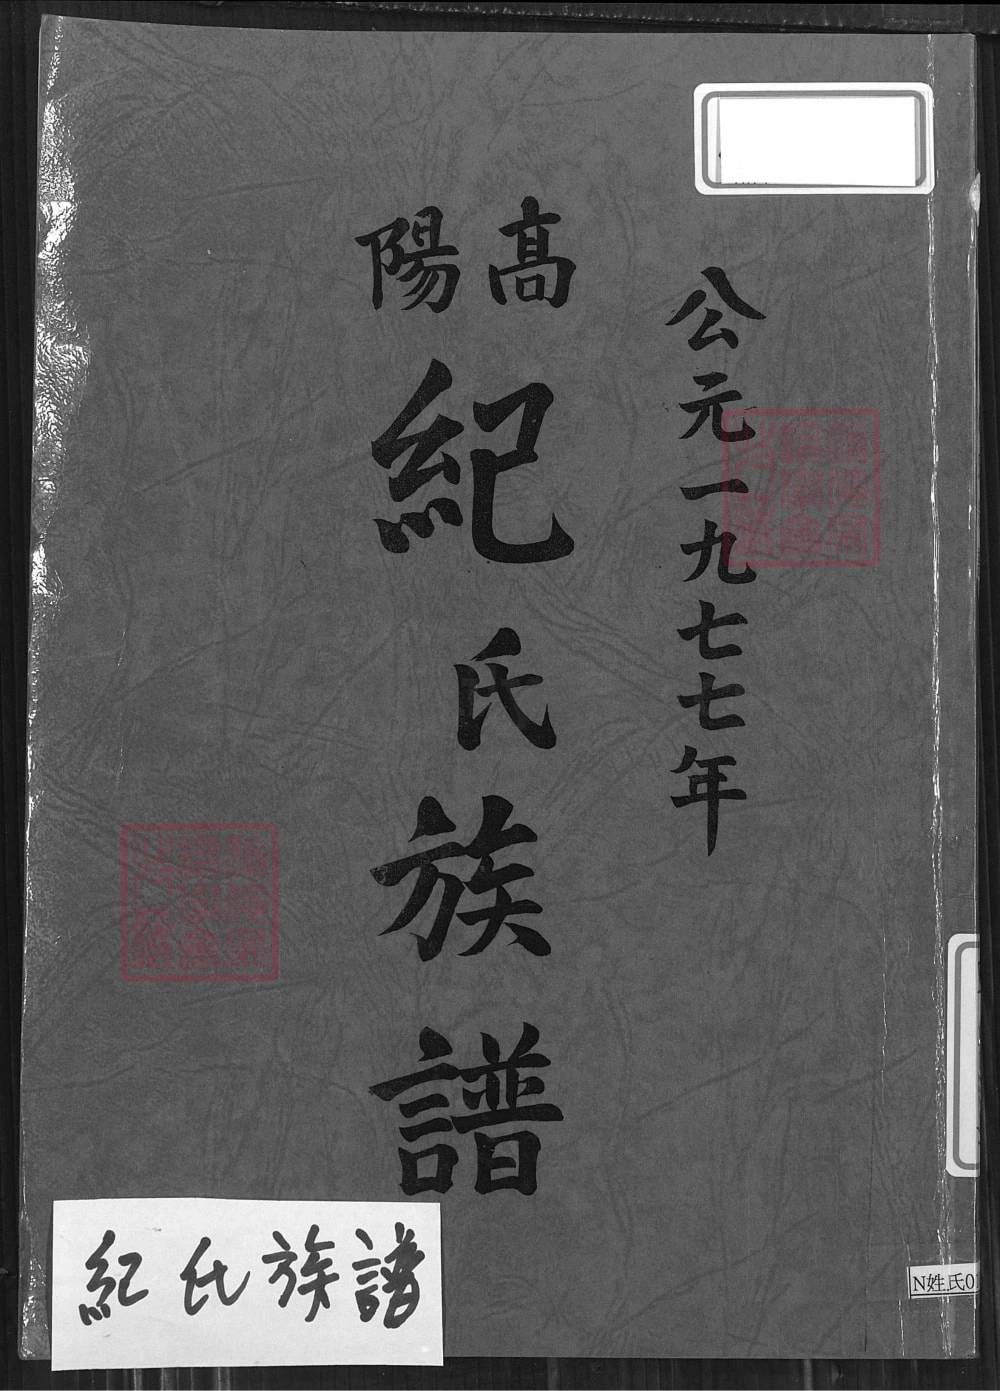 公元一九七七年
高陽
紀氏族譜
紀氏族譜
N姓.氏0